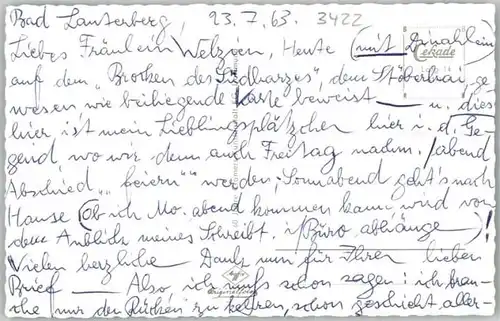 Bad Lauterberg, 23.7.63. 3422
Liebes Fräulein Welzien, Heute (mit Drinahlein)
auf dem „Brocken des Südharzes", dem Stöberhai ge-
wesen wie beiliegende Karte beweist — u. dies
hier ist mein Lieblingsplätzchen hier i. d. Ge-
gend wo wir denn auch Freitag nachm./abend
Abschied „feiern" werden, Sonnabend geht's nach
Hause (Ob ich Mo. abend kommen kann wird von
dem Anblick meines Schreibt. i/Büro abhänge)
Vielen herzliche Dank nun für Ihren lieben
Brief — Also ich muß schon sagen: ich brau-
che nur den Rücken zu kehren, schon geschieht aller-